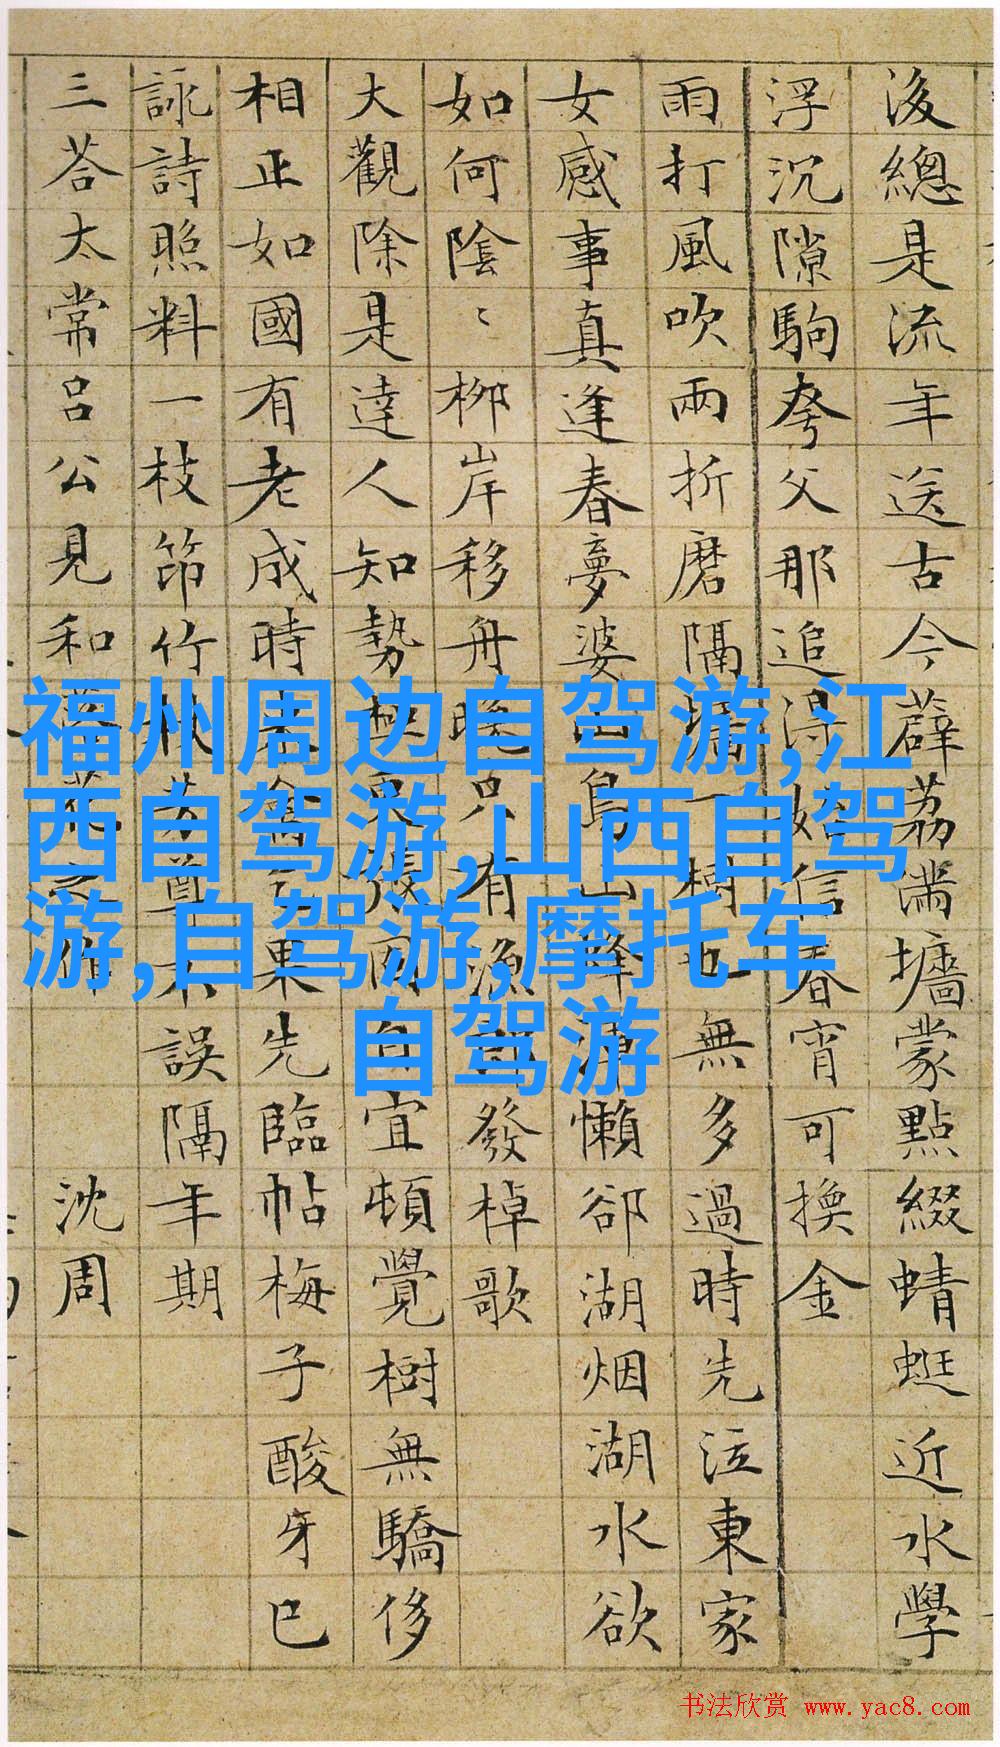 後總是流年送古今薜荔滿墻蒙點綴蜻蜓近水學
浮沉隙駒夸父那追得始信春宵可換金
雨打風吹兩折磨隔墻一樹也無多過時先泣東家
女感事真逢春夢婆山鳥山懶卻湖烟湖水欲
如何陰〻柳岸移舟晚只有漁郎發棹歌
大觀除是達人知勢極因自宜頓覺樹無驕侈
相正如國有老成時未果先臨帖梅子酸牙已
詠詩照料一枝笻竹杖芳尊不誤隔年期
三荅太常呂公見和落花之作 沈周
福州周边自驾游,江
西自驾游,山西自驾
游,自驾游,摩托车
自驾游
书法欣赏 www.yac8.com